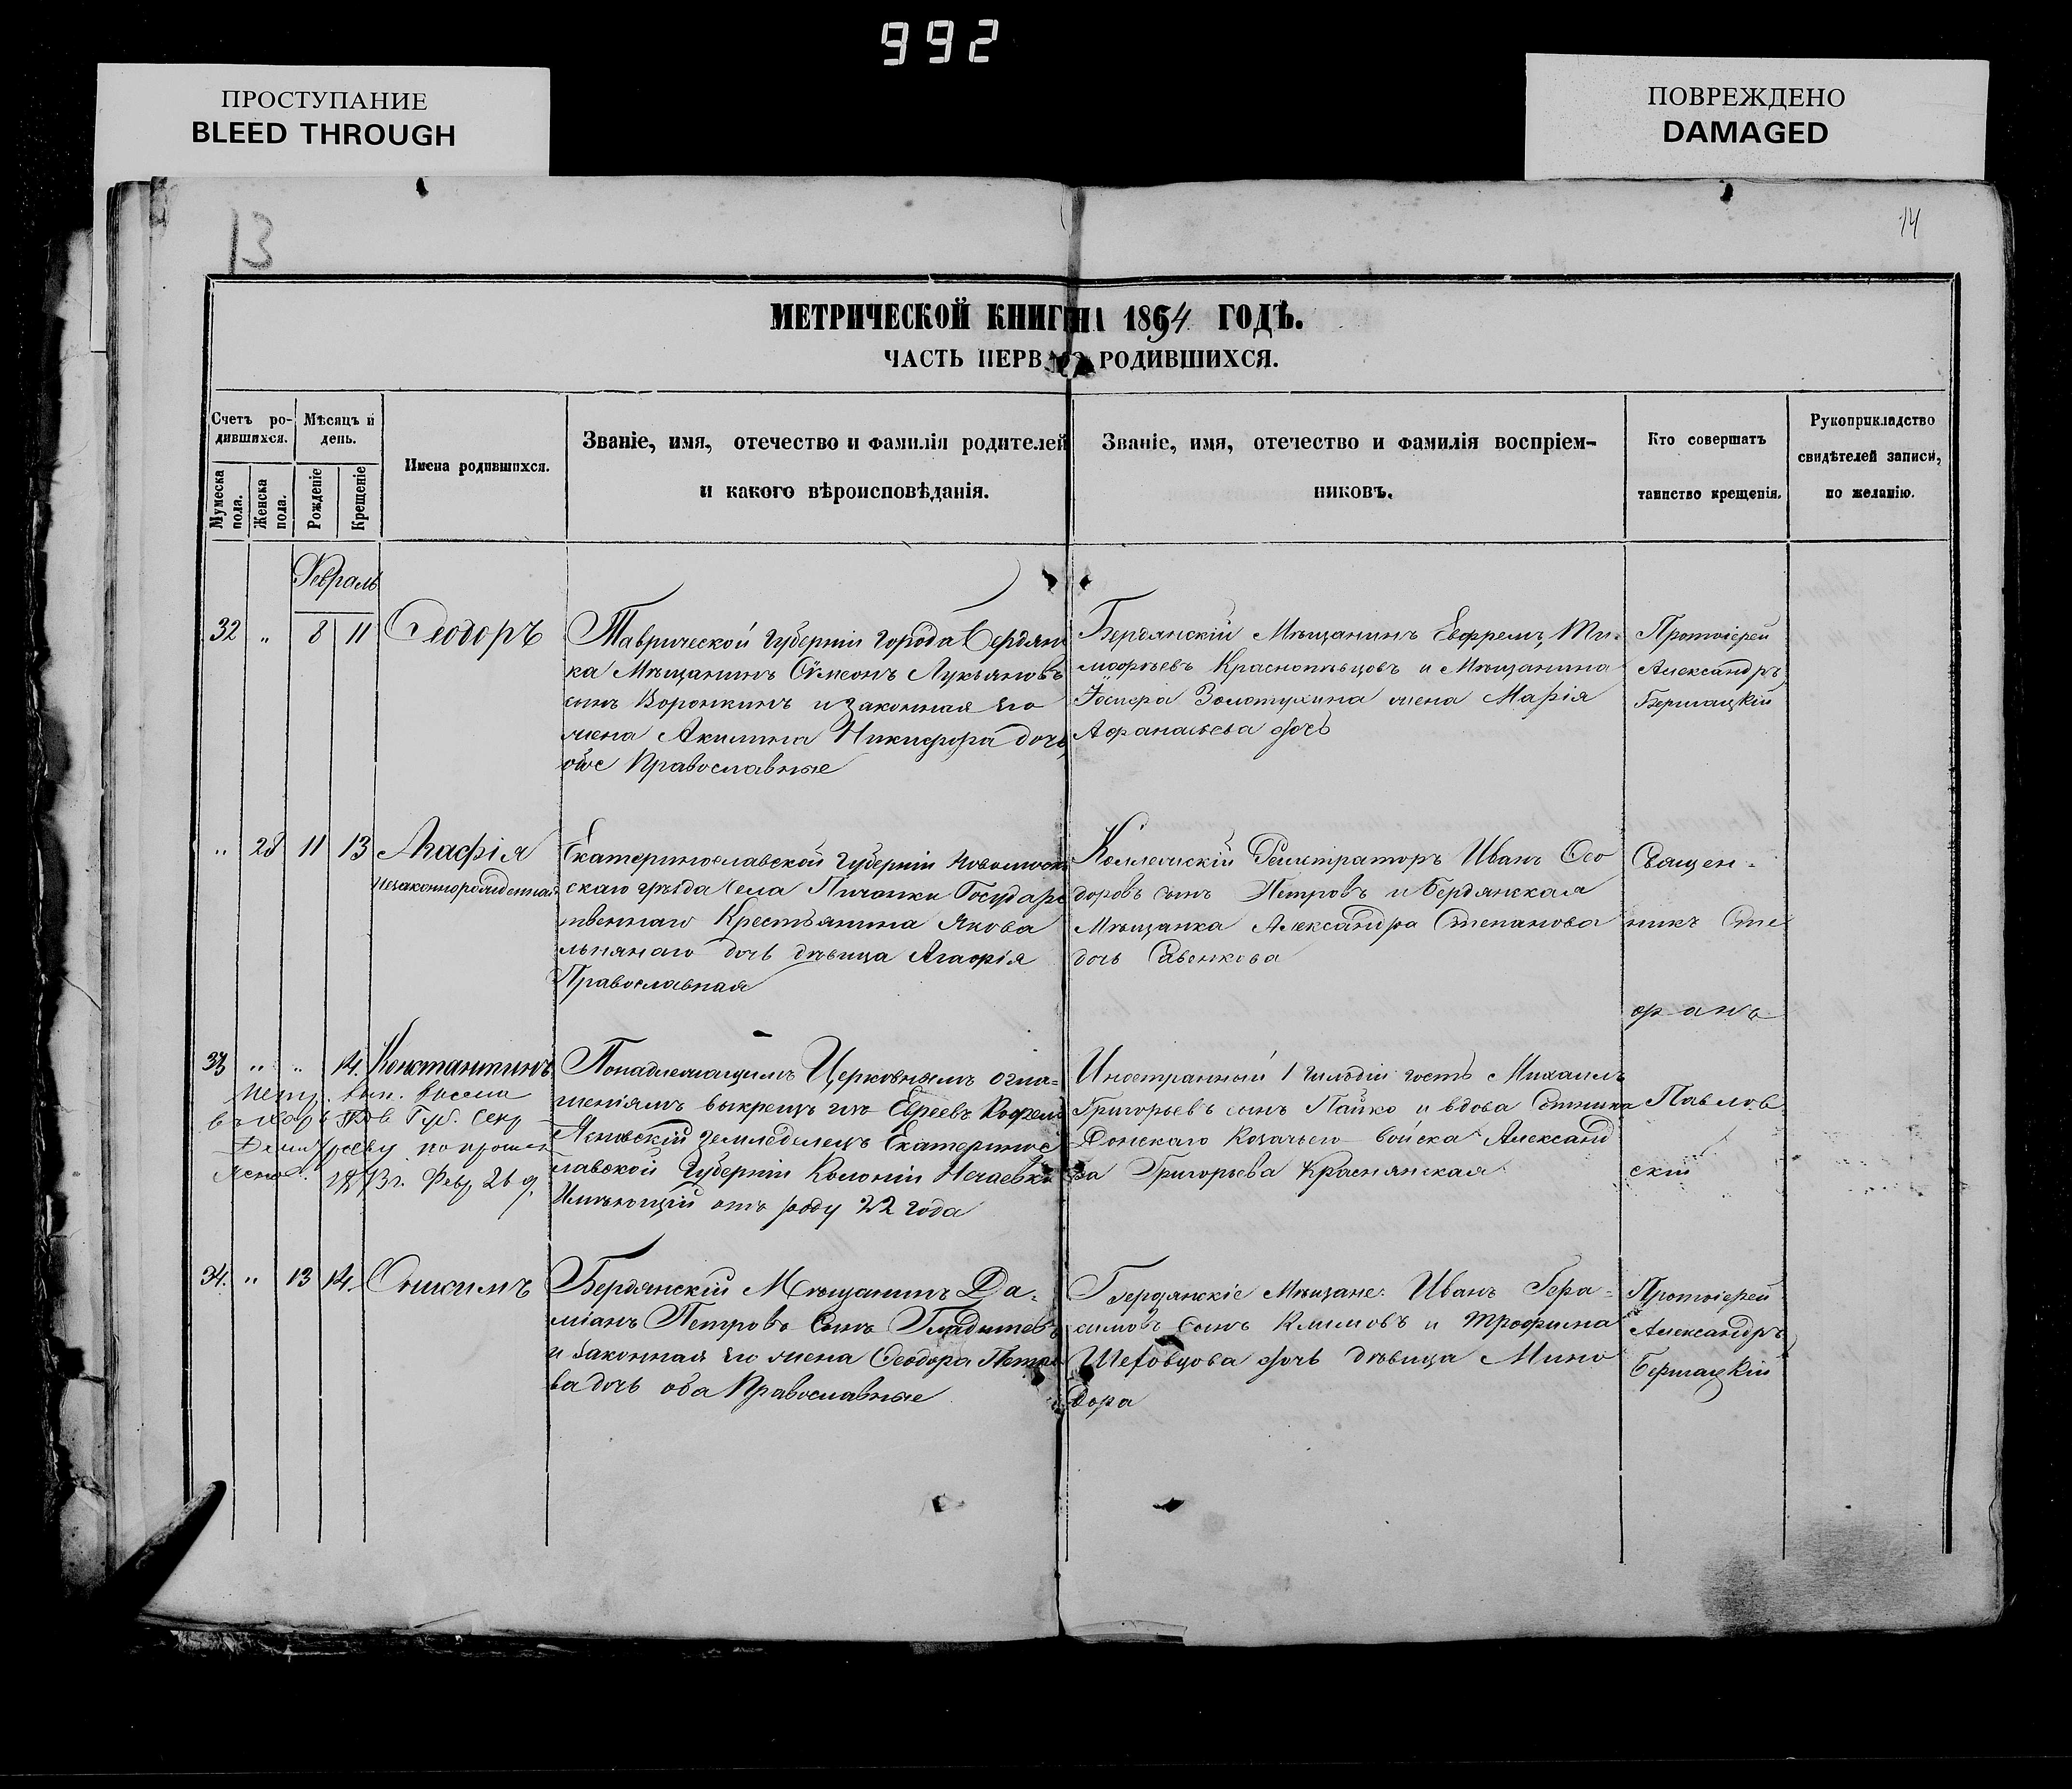 992
ПРОСТУПАНИЕ
BLEED THROUGH
ПОВРЕЖДЕНО
DAMAGED
13
14
МЕТРИЧЕСКОЙ КНИГИ НА 1864 ГОДЪ.
ЧАСТЬ ПЕРВАЯ О РОДИВШИХСЯ.
Счетъ ро-
дившихся.
Мужеска
пола.
Женска
пола.
Мѣсяцъ и
день.
Рожденіе
Крещеніе
Имена родившихся.
Званіе, имя, отечество и фамилія родителей
и какого вѣроисповѣданія.
Званіе, имя, отечество и фамилія воспріем-
никовъ.
Кто совершатъ
таинство крещенія.
Рукоприкладство
свидѣтелей записи,
по желанію.
Февраль
32 „ 8 11 Ѳеодоръ
Таврической Губерніи города Бердянс
ка Мѣщанинъ Сѵмеонъ Лукьяновъ
сынъ Воронкинъ и законная его
жена Акилина Никифора дочь,
обое Православные
Бердянскій Мѣщанинъ Ефремъ Ти-
мофѣевъ Краснопѣвцовъ и Мѣщанина
Золотухина жена Марія
Афанасьева дочь
Протоіерей
Александръ
Бершацкій
„ 28 11 13 Агафія
Незаконнорожденная
Екатеринославской Губерніи Новомоск
скаго уѣзда села Пичанки Государс
твеннаго Крестьянина Якова
дочь дѣвица Агафія
Православная
Коллежскій Регистраторъ Иванъ Ѳео
доровъ сынъ Петровъ и Бердянская
Мѣщанка Александра Степанова
дочь Савенкова
Священ-
никъ Сте
фанъ
33 „ „ 14. Константинъ
Понадлежащимъ Церковнымъ огла-
шеніямъ выкрещъ изъ Евреевъ
Ясновскій земледелецъ Екатеринос
лавской Губерніи Колоніи Нечаевки
Имѣющій отъ роду 22 года
Иностранный 1 гильдіи гость Михаилъ
Григорьевъ сынъ Пайко и вдова Сотника
Донскаго Козачьего войска Александ
ра Григорьева Краснянская
Павлов
скій
Метр. вып.
въ Губ. Секр
по прошен
1873 г. Февр. 26 д.
34. „ 13 14. Онисимъ
Бердянскій Мѣщанинъ Да-
міанъ Петровъ Сынъ Гладышевъ
и законная его жена Ѳеодора Петро
ва дочь оба Православные
Бердянскіе Мѣщане: Иванъ Гера-
симовъ Сынъ Климовъ и Трофима
Шеховцова дочь дѣвица Мино
дора
Протоіерей
Александръ
Бершацкій